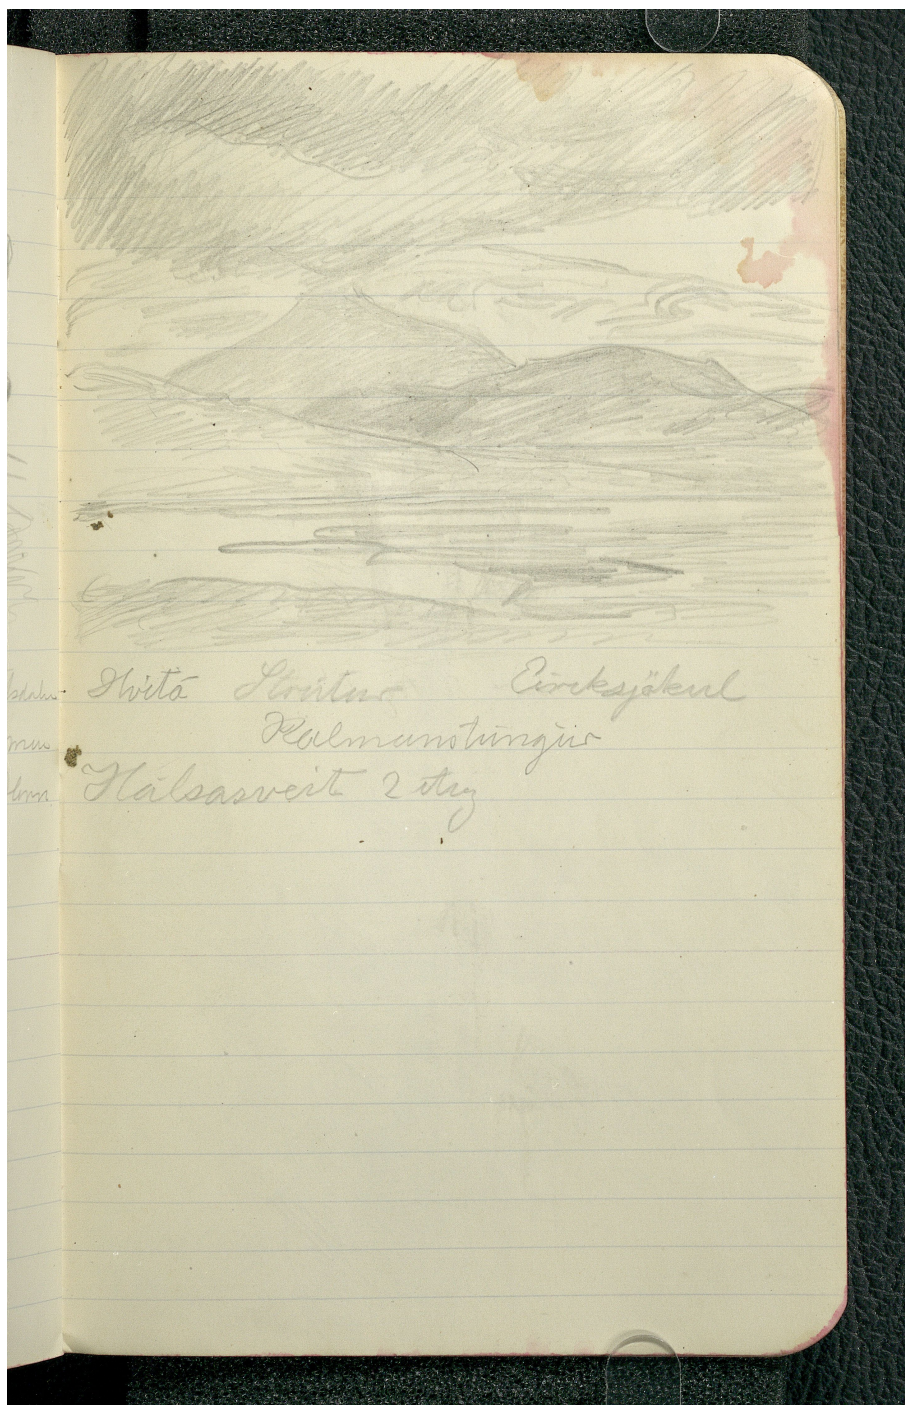 Hvítá Strútur Eireksjökul
Kalmanstúngur
Hálsasveit 2